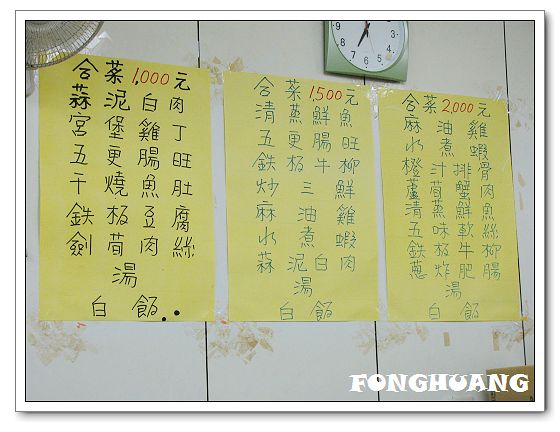 合菜1,000元
蒜泥白肉
宮堡雞丁
五更腸旺
干燒魚肚
鉄板豆腐
劍荀肉絲
湯
白飯..
合菜1,500元
清蒸鮮魚
五更腸旺
鉄板牛柳
炒三鮮
麻油雞
水煮蝦
蒜泥白肉
湯
白飯
合菜2,000元
麻油雞
水煮蝦
橙汁排骨
蘆荀蟹肉
清蒸鮮魚
五味軟絲
鉄板牛柳
蔥炸肥腸
湯
白飯
FONGHUANG